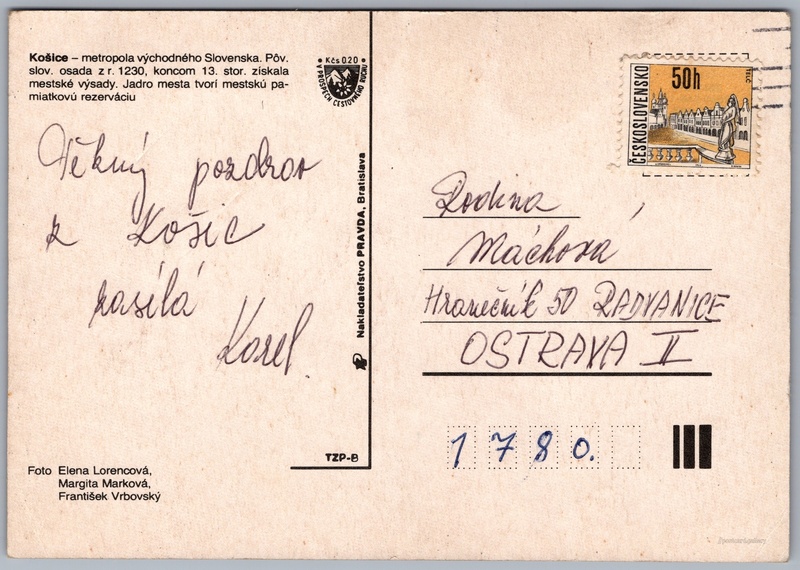 Košice – metropola východného Slovenska. Pôv.
slov. osada z r. 1230, koncom 13. stor. získala
mestské výsady. Jadro mesta tvorí mestskú pa-
miatkovú rezerváciu
Kčs 0.20
V PROSPECH CESTOVNÉHO RUCHU
Pěkný pozdrav
z Košic
zasílá
Karel.
Foto Elena Lorencová,
Margita Marková,
František Vrbovský
Nakladateľstvo PRAVDA, Bratislava
TZP-B
ČESKOSLOVENSKO
50h
TELČ
Rodina
Máchova
Hranečník 50 RADVANICE
OSTRAVA II
1780.